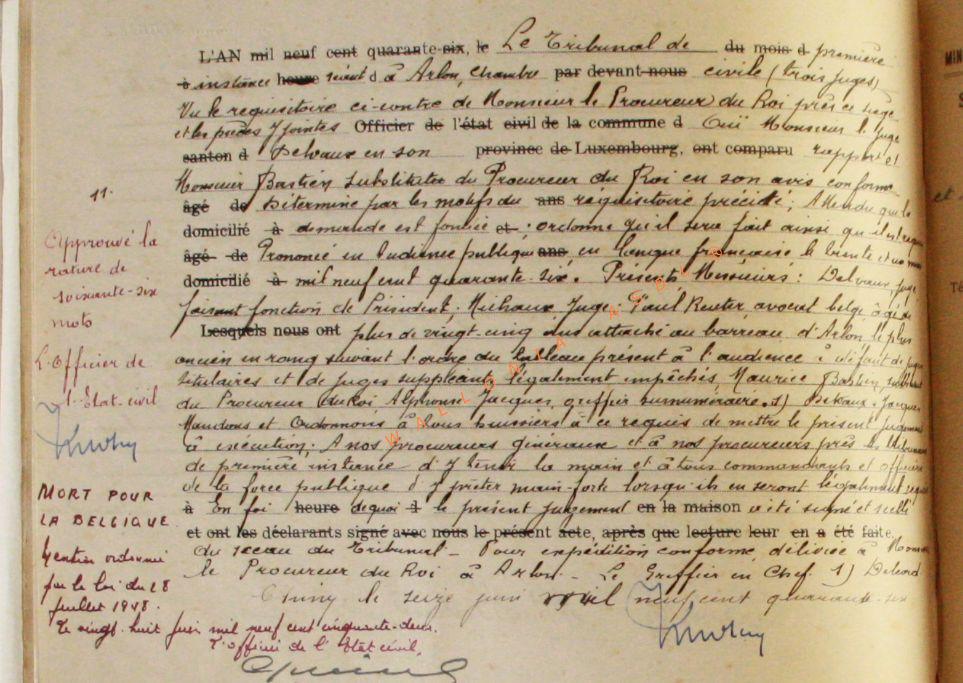 L'AN mil neuf cent quarante-six, le Le Tribunal de du mois d première
à instance heure séant d à Arlon, chambre par devant nous civile (trois juges)
Vu le requisitoire ci-contre de Monsieur le Procureur du Roi près ce siège
et les pièces y jointes Officier de l'état civil de la commune d Ouï Monsieur le Juge
canton d Delvaux en son province de Luxembourg, ont comparu rapport et
Monsieur Bastien substitut du Procureur du Roi en son avis conforme
âgé de Déterminé par les motifs du ans réquisitoire précité; Attendu que la
domicilié à demande est fondée et ordonne qu'il sera fait ainsi qu'il est requis
âgé de Prononcé en l'audience publique ans, en langue française le trente et un
domicilié à mil neuf cent quarante-six. Présents Messieurs: Delvaux juge
faisant fonction de Président, Michaux, Juge, Paul Reuter, avocat belge âgé de
Lesquels nous ont plus de vingt-cinq ans attaché au barreau d'Arlon le plus
ancien en rang suivant l'ordre du tableau présent à l'audience à défaut de juges
titulaires et de juges suppléants légalement empêchés, Maurice Bastien, substitut
du Procureur du Roi Alphonse Jacques, greffier surnuméraire. s) Delvaux. Jacques
Mandons et Ordonnons à tous huissiers à ce requis de mettre le présent jugement
à exécution; A nos procureurs généraux et à nos procureurs près les tribunaux
de première instance d'y tenir la main et à tous commandants et officiers
de la force publique d'y prêter main-forte lorsqu'ils en seront légalement requis
à En foi heure de quoi le présent jugement en la maison a été signé et scellé
et ont les déclarants signé avec nous le présent acte, après que lecture leur en a été faite.
du sceau du Tribunal - Pour expédition conforme délivrée à Monsieur
le Procureur du Roi à Arlon - Le Greffier en Chef. s)
Chiny le seize juin mil neuf cent quarante-six
11.
Approuvé la
rature de
soixante-six
mots
L'Officier de
l'Etat-civil
MORT POUR
LA BELGIQUE
Mention ordonnée
par la loi du 28
juillet 1948.
Le vingt-huit juin mil neuf cent cinquante-deux.
L'officier de l'Etat civil,
MIN
S
et
Té